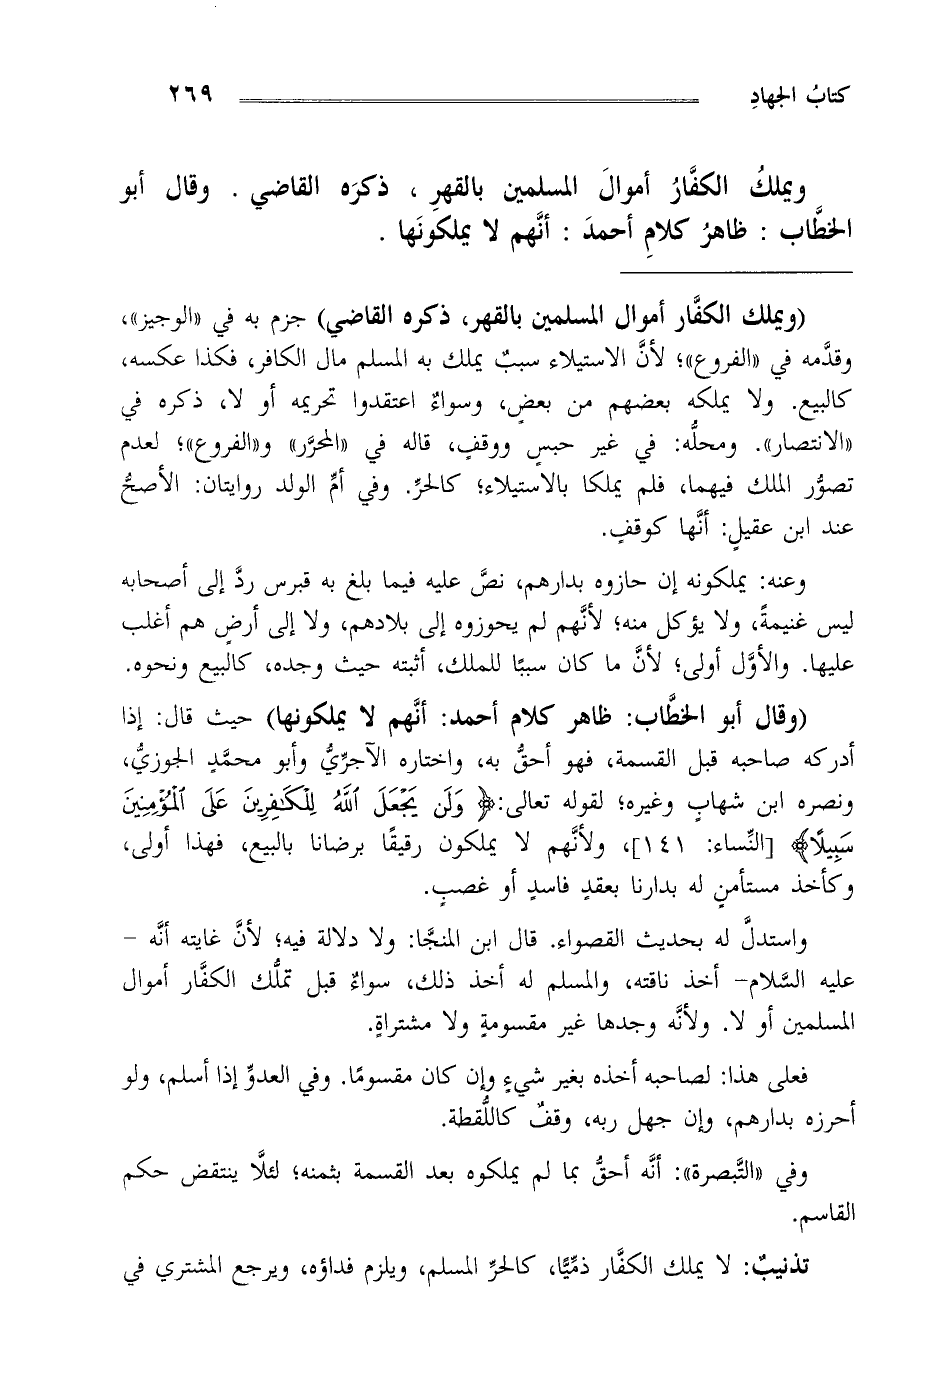 كتابُ الجهادِ ٢٦٩
ويملكُ الكفَّارُ أموالَ المسلمين بالقهرِ ، ذكرَه القاضي . وقال أبو
الخطَّاب : ظاهرُ كلامِ أحمدَ : أنَّهم لا يملكونَها .
(ويملك الكفَّار أموال المسلمين بالقهر، ذكره القاضي) جزم به في «الوجيز»،
وقدَّمه في «الفروع»؛ لأنَّ الاستيلاء سببٌ يملك به المسلم مال الكافر، فكذا عكسه،
كالبيع. ولا يملكه بعضهم من بعضٍ، وسواءٌ اعتقدوا تحريمه أو لا، ذكره في
«الانتصار». ومحلُّه: في غير حبسٍ ووقفٍ، قاله في «المحرَّر» و«الفروع»؛ لعدم
تصوُّر الملك فيهما، فلم يملكا بالاستيلاء؛ كالحرِّ. وفي أمِّ الولد روايتان: الأصحُّ
عند ابن عقيلٍ: أنَّها كوقفٍ.
وعنه: يملكونه إن حازوه بدارهم، نصَّ عليه فيما بلغ به قبرس ردَّ إلى أصحابه
ليس غنيمةً، ولا يؤكل منه؛ لأنَّهم لم يحوزوه إلى بلادهم، ولا إلى أرضٍ هم أغلب
عليها. والأوَّل أولى؛ لأنَّ ما كان سببًا للملك، أثبته حيث وجده، كالبيع ونحوه.
(وقال أبو الخطَّاب: ظاهر كلام أحمد: أنَّهم لا يملكونها) حيث قال: إذا
أدركه صاحبه قبل القسمة، فهو أحقُّ به، واختاره الآجرِّيُّ وأبو محمَّدٍ الجوزيُّ،
ونصره ابن شهابٍ وغيره؛ لقوله تعالى:﴿ وَلَن يَجْعَلَ ٱللَّهُ لِلْكَٰفِرِينَ عَلَى ٱلْمُؤْمِنِينَ
سَبِيلًا﴾ [النِّساء: ١٤١]، ولأنَّهم لا يملكون رقيقًا برضانا بالبيع، فهذا أولى،
وكأخذ مستأمنٍ له بدارنا بعقدٍ فاسدٍ أو غصبٍ.
واستدلَّ له بحديث القصواء. قال ابن المنجَّا: ولا دلالة فيه؛ لأنَّ غايته أنَّه –
عليه السَّلام– أخذ ناقته، والمسلم له أخذ ذلك، سواءٌ قبل تملُّك الكفَّار أموال
المسلمين أو لا. ولأنَّه وجدها غير مقسومةٍ ولا مشتراةٍ.
فعلى هذا: لصاحبه أخذه بغير شيءٍ وإن كان مقسومًا. وفي العدوِّ إذا أسلم، ولو
أحرزه بدارهم، وإن جهل ربه، وقفٌ كاللُّقطة.
وفي «التَّبصرة»: أنَّه أحقُّ بما لم يملكوه بعد القسمة بثمنه؛ لئلَّا ينتقض حكم
القاسم.
تذنيبٌ: لا يملك الكفَّار ذمِّيًّا، كالحرِّ المسلم، ويلزم فداؤه، ويرجع المشتري في